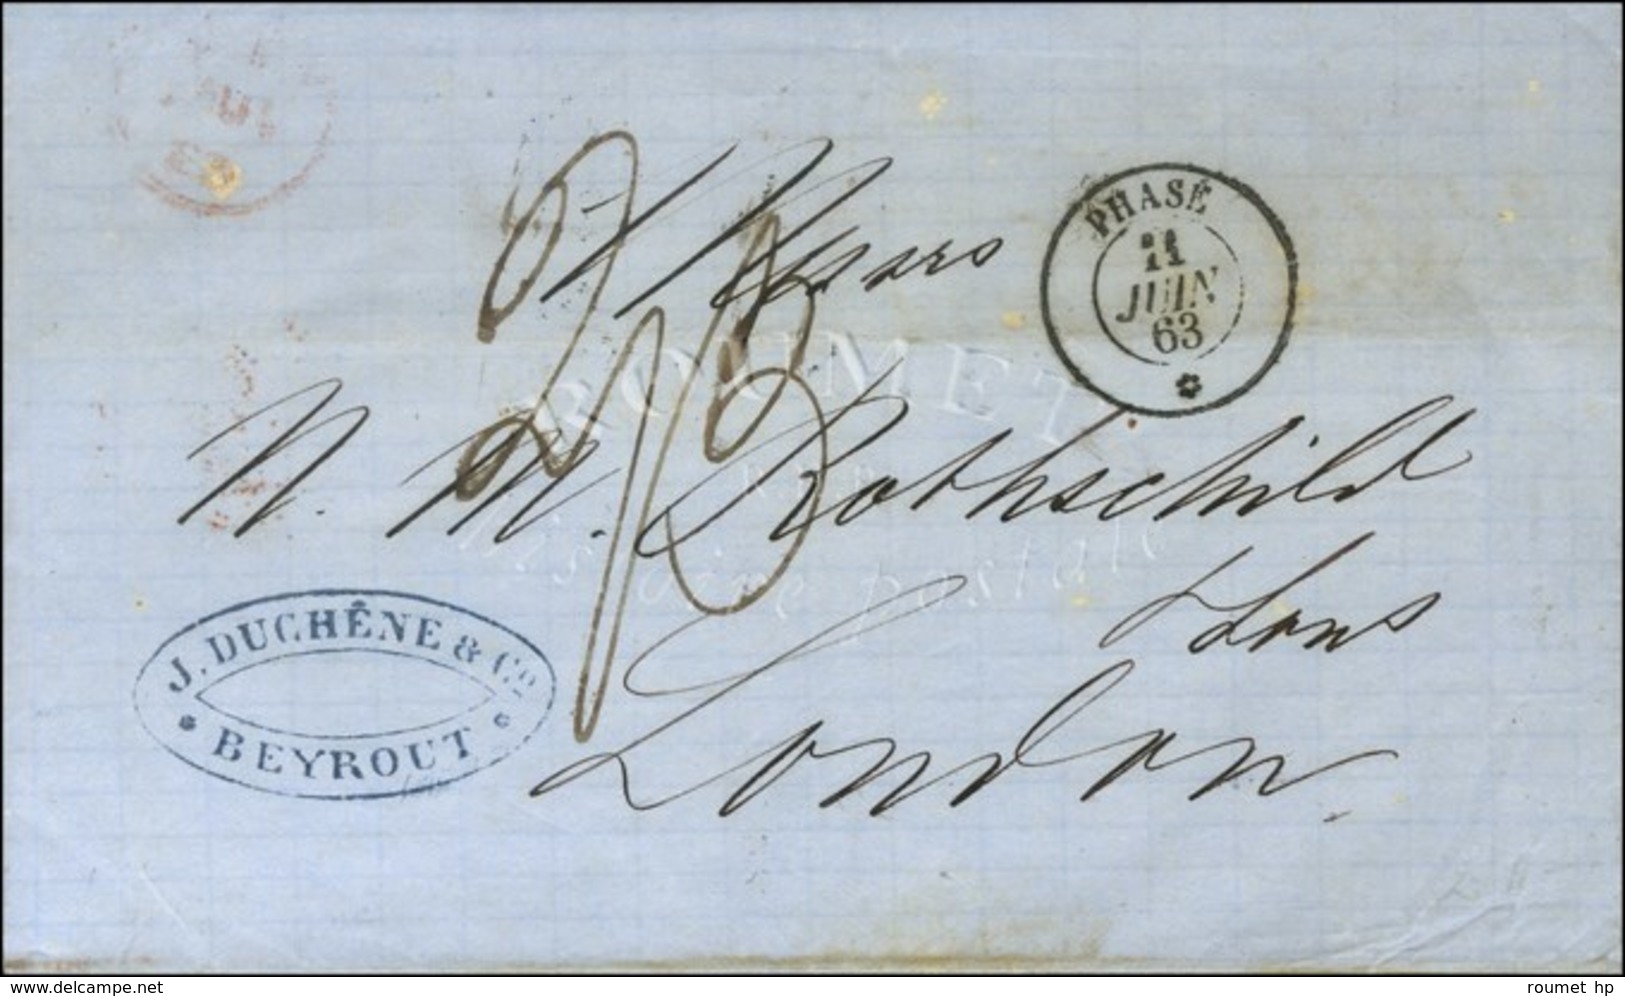 PHASE
11
JUIN
63
Messrs
ROUMET
N. M. Rothschild
Histoire postale
& Sons
London.
J. DUCHÊNE & Cº
BEYROUT
www.delcampe.net
roumet hp